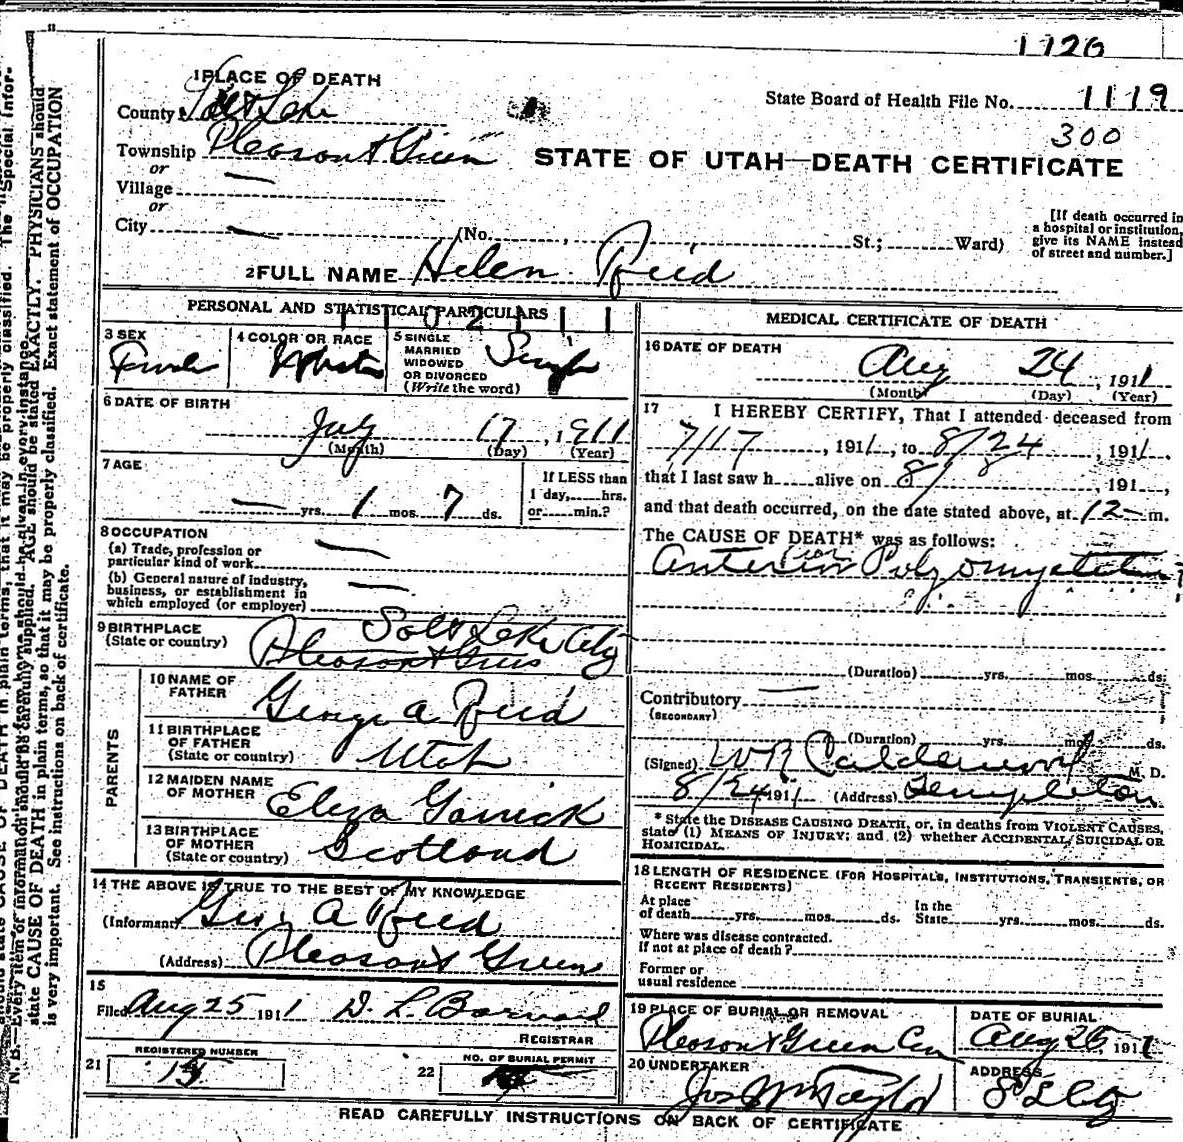 1126
1 PLACE OF DEATH
County Salt Lake
State Board of Health File No. 1119
300
Township Pleasant Green
or
Village —
or
City —
STATE OF UTAH—DEATH CERTIFICATE
(No. , St.; Ward)
[If death occurred in
a hospital or institution,
give its NAME instead
of street and number.]
2 FULL NAME Helen Reid
PERSONAL AND STATISTICAL PARTICULARS
3 SEX
Female
4 COLOR OR RACE
White
5 SINGLE
MARRIED
WIDOWED
OR DIVORCED
(Write the word)
Single
6 DATE OF BIRTH
July 17, 1911
(Month) (Day) (Year)
7 AGE
— yrs. 1 mos. 7 ds.
If LESS than
1 day, hrs.
or min.?
8 OCCUPATION
(a) Trade, profession or
particular kind of work —
(b) General nature of industry,
business, or establishment in
which employed (or employer) —
9 BIRTHPLACE
(State or country)
Salt Lake City
Pleasant Green
PARENTS
10 NAME OF
FATHER
George A Reid
11 BIRTHPLACE
OF FATHER
(State or country)
Utah
12 MAIDEN NAME
OF MOTHER
Eliza Garrick
13 BIRTHPLACE
OF MOTHER
(State or country)
Scotland
14 THE ABOVE IS TRUE TO THE BEST OF MY KNOWLEDGE
(Informant) Geo. A Reid
(Address) Pleasant Green
15
Filed Aug 25 1911 D. L. Barnard
REGISTRAR
21 REGISTERED NUMBER
15
22 NO. OF BURIAL PERMIT
MEDICAL CERTIFICATE OF DEATH
16 DATE OF DEATH
Aug 24, 1911
(Month) (Day) (Year)
17 I HEREBY CERTIFY, That I attended deceased from
7/17, 1911, to 8/24, 1911,
that I last saw h alive on 8/8, 191 ,
and that death occurred, on the date stated above, at 12 m.
The CAUSE OF DEATH* was as follows:
Anterior
(Duration) yrs. mos. ds.
Contributory —
(SECONDARY)
(Duration) yrs. mos. ds.
(Signed) W R Calderwood M. D.
8/24 1911 (Address) Templeton
* State the DISEASE CAUSING DEATH, or, in deaths from VIOLENT CAUSES,
state (1) MEANS OF INJURY; and (2) whether ACCIDENTAL, SUICIDAL OR
HOMICIDAL.
18 LENGTH OF RESIDENCE (FOR HOSPITALS, INSTITUTIONS, TRANSIENTS, OR
RECENT RESIDENTS)
At place
of death yrs. mos. ds.
In the
State yrs. mos. ds.
Where was disease contracted.
If not at place of death?
Former or
usual residence
19 PLACE OF BURIAL OR REMOVAL
Pleasant Green Cem
DATE OF BURIAL
Aug 25, 1911
20 UNDERTAKER
Jos Wm Taylor
ADDRESS
S L City
READ CAREFULLY INSTRUCTIONS ON BACK OF CERTIFICATE
state CAUSE OF DEATH in plain terms, so that it may be properly classified. Exact statement of OCCUPATION
is very important. See instructions on back of certificate.